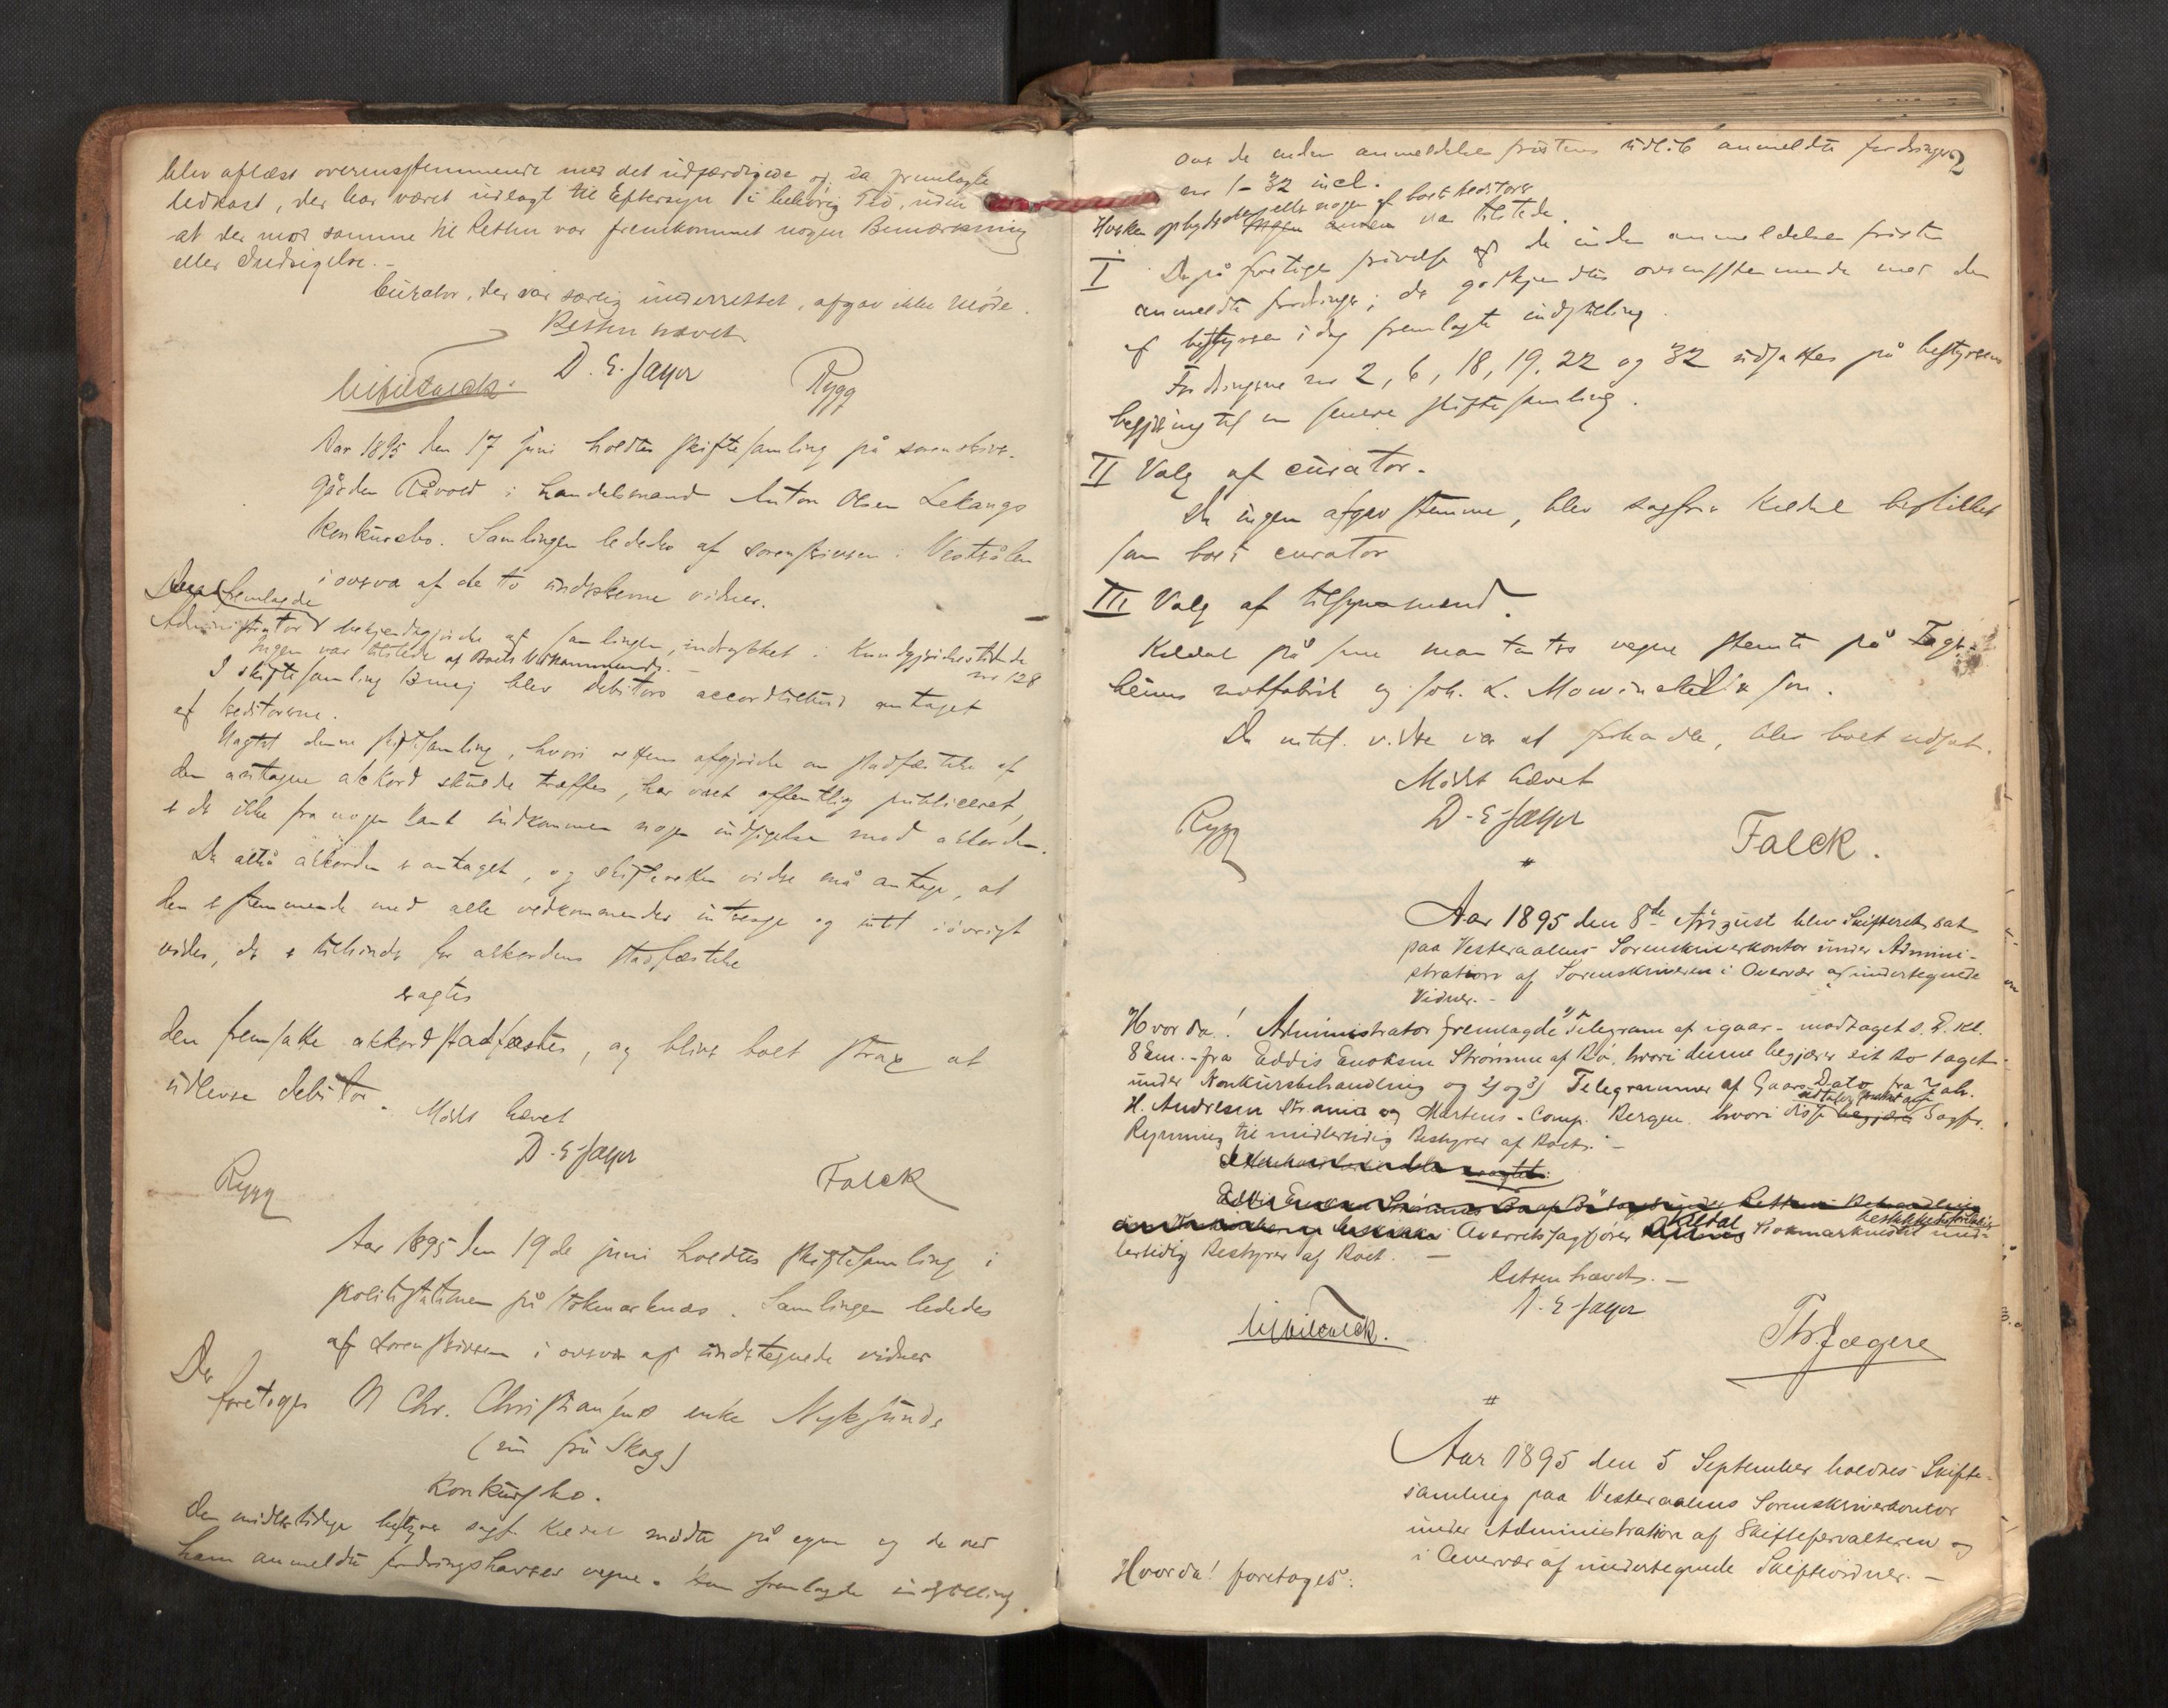 blev oplæst overensstemmende med det udfærdigede og da fremlagte
Udkast, der har været udlagt til Eftersyn i behørig Tid, uden
at der mod samme til Retten var fremkommet nogen Bemærkning
eller Indsigelse. -
Curator, der var særlig underrettet, afgav ikke Møde.
Retten hævet
D. E. Jager Rygg
Aar 1895 den 17 juni holdtes skiftesamling på sorenskriver-
gården Råvold i handelsmand Anton Olsen Lekangs
konkursbo. Samlingen lededes af sorenskriveren i Vesterålen
i overvær af de to undskrevne vidner.
fremlagde
Administrator bekjendtgjørelse af samlingen, indrykket i Kundgjørelsestidende
nr 128
Ingen var tilstede af Boets Vedkommende. -
I skiftesamling 13 maj blev debitors accordtilbud antaget
af kreditorerne.
Uagtet denne skiftesamling, hvori rettens afgjørelse om stadfæstelse af
den antagne akkord skulde træffes, har været offentlig publiceret,
er der ikke fra nogen kant indkommen nogen indsigelse mod akkorden.
Da altså akkorden er antaget, og skifteretten videre må antage, at
den er stemmende med alle vedkommendes interesse og intet iøvrigt
vides, der er til hinder for akkordens stadfæstelse
eragtes
den fremsatte akkord stadfæstes, og bliver boet strax at
udlevere debitor.
Mødet hævet
D. E. Jager
Rygg Falck
Aar 1895 den 19de juni holdtes skiftesamling i
politistationen på Stokmarknæs. Samlingen lededes
af sorenskriveren i overvær af undertegnede vidner
Der
foretoges N Chr. Christiansens enke Nyksunds
(nu fru Skog)
Konkursbo.
Den midlertidige bestyrer sagf. Keldal mødte på egne og de ved
ham anmeldte fordringshaveres vegne. Han fremlagde indstilling
2
over de inden anmeldelsesfristens udløb anmeldte fordringer
nr 1-32 incl.
Hverken eller nogen af boets kreditorer var tilstede.
I Derpå foretoges prøvelse af de inden anmeldelsesfristen
anmeldte fordringer; de godkjendtes overensstemmende med den
af bestyreren i dag fremlagte indstilling.
Fordringerne nr 2, 6, 18, 19, 22 og 32 udsattes på bestyrerens
begjæring til en senere skiftesamling.
II Valg af curator.
Da ingen afgav stemme, blev sagfører Keldal beskikket
som boets curator
III Valg af tilsynsmænd.
Keldal på sine mandanters vegne stemte på Fager-
heims notfabrik og Joh. L. Mowinckel & søn.
Da intet videre var at forhandle, blev boet udsat.
Mødet hævet
D. E. Jager
Rygg Falck.
#
Aar 1895 den 8de August blev Skifteret sat
paa Vesteraalens Sorenskriverkontor under Admini-
stration af Sorenskriveren i Overvær af undertegnede
Vidner. -
Hvorda! Administrator fremlagde 1) Telegram af igaar - modtaget s. D. Kl.
8 Em. - fra Eddis Enoksen Strømme af Bø, hvori denne begjærer sit Bo taget
under Konkursbehandling og 2) og 3) Telegrammer af Gaars Dato fra Joh.
H. Andresen Kristiania og Martens & Comp. Bergen hvori disse Sagfr.
Rynning til midlertidig Bestyrer af Boet. -
Overretssagfører Keldal Stokmarknæs beskikkedes mid-
lertidig Bestyrer af Boet. -
Retten hævet. -
D. E. Jager
Th. Jægere
#
Aar 1895 den 5 September holdtes Skifte-
samling paa Vesteraalens Sorenskriverkontor
under Administration af Skifteforvalteren og
i Overvær af undertegnede Skiftevidner. -
Hvorda! foretages: